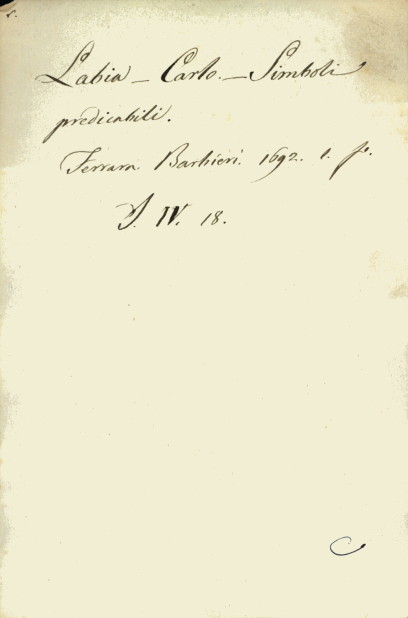 Labia - Carlo. - Simboli
predicabili.
Ferrara Barbieri. 1692. 1. f.º
IV. 18.
C